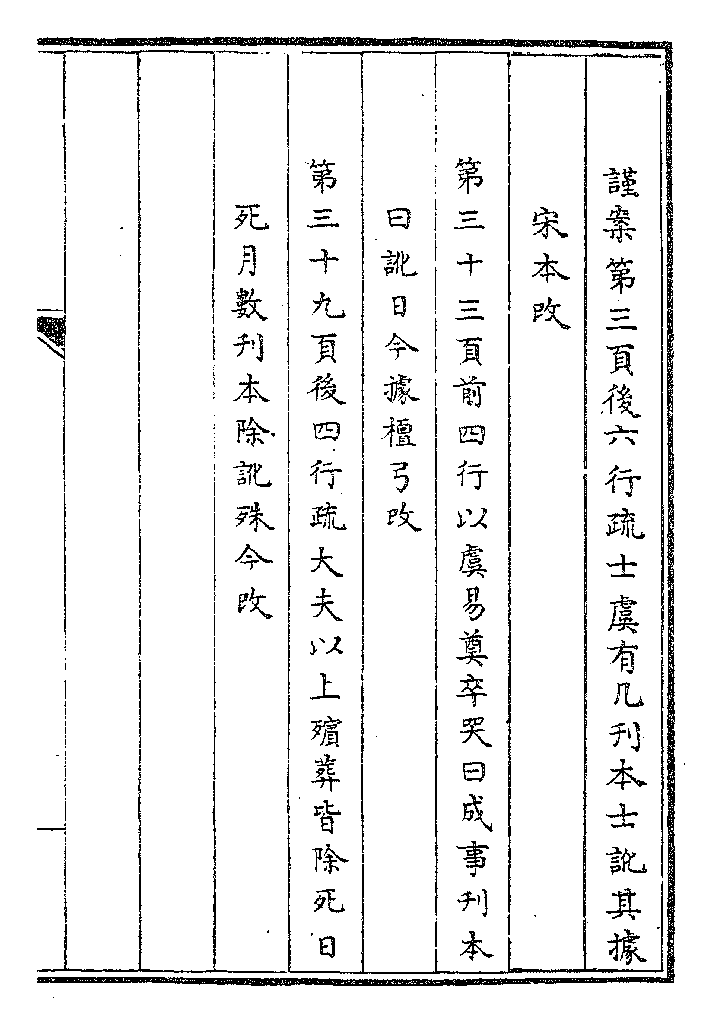 謹案第三頁後六行疏士虞有几刊本士訛其據
宋本改
第三十三頁前四行以虞易奠卒哭曰成事刊本
曰訛日今據檀弓改
第三十九頁後四行疏大夫以上殯葬皆除死日
死月數刊本除訛殊今改